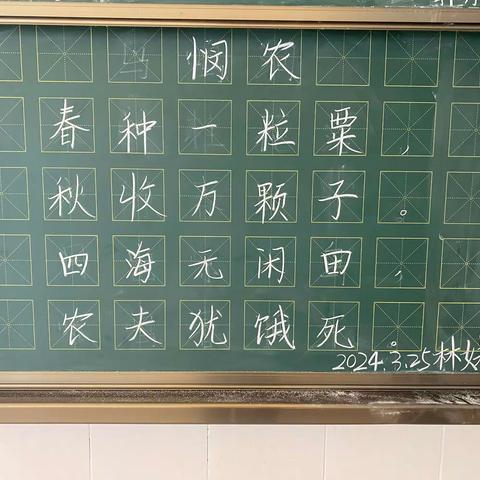 悯农
春种一粒粟，
秋收万颗子。
四海无闲田，
农夫犹饿死。
2024.3.25林